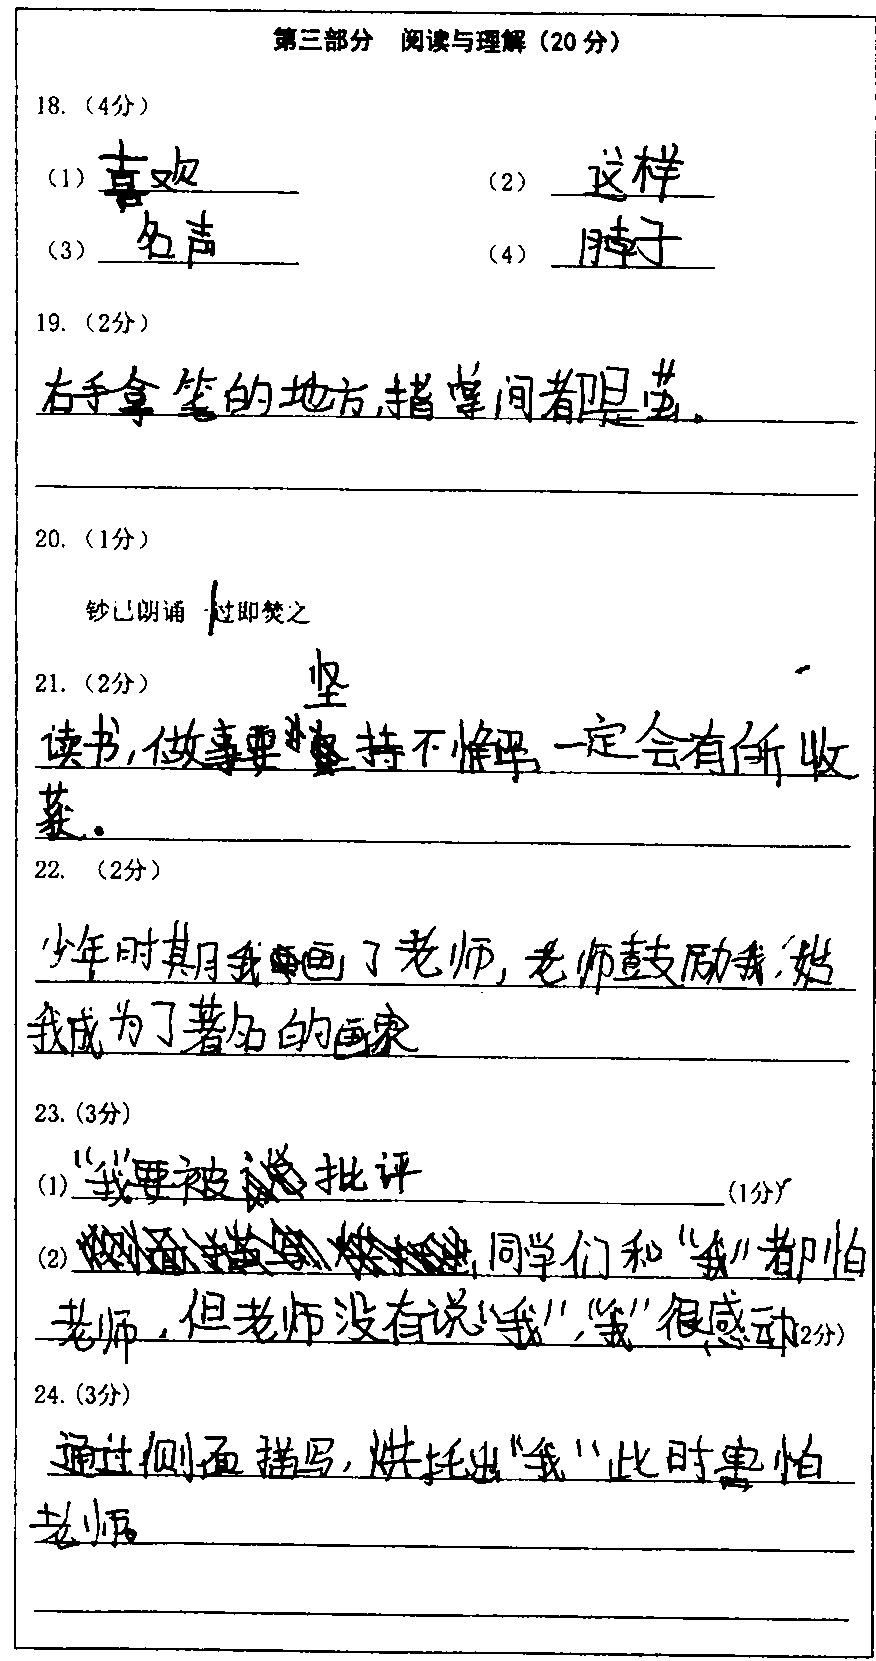 第三部分 阅读与理解（20分）
18.（4分）
（1）喜欢 （2）这样
（3）名声 （4）脖子
19.（2分）
右手拿笔的地方,指掌间都是茧。
20.（1分）
钞已朗诵一过即焚之
21.（2分） 坚
读书,做事要持不懈 一定会有所收
获。
22. （2分）
少年时期我画了老师,老师鼓励我,
我成为了著名的画家
23.(3分)
(1)“我”要被批评 (1分)
(2) 同学们和“我”都怕
老师,但老师没有说“我”,“我”很感动(2分)
24.(3分)
通过侧面描写,烘托出“我”此时害怕
老师。